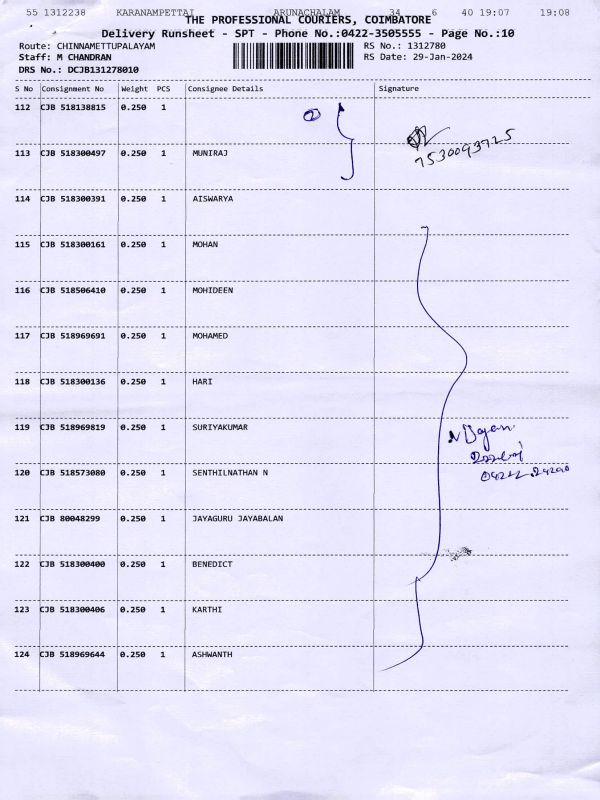 55 1312238 KARANAMPETTAI ARUNACHALAM 34 6 40 19:07 19:08
THE PROFESSIONAL COURIERS, COIMBATORE
Delivery Runsheet - SPT - Phone No.:0422-3505555 - Page No.:10
Route: CHINNAMETTUPALAYAM RS No.: 1312780
Staff: M CHANDRAN RS Date: 29-Jan-2024
DRS No.: DCJB131278010
S No Consignment No Weight PCS Consignee Details Signature
112 CJB 518138815 0.250 1 2
7530093725
113 CJB 518300497 0.250 1 MUNIRAJ
114 CJB 518300391 0.250 1 AISWARYA
115 CJB 518300161 0.250 1 MOHAN
116 CJB 518506410 0.250 1 MOHIDEEN
117 CJB 518969691 0.250 1 MOHAMED
118 CJB 518300136 0.250 1 HARI
119 CJB 518969819 0.250 1 SURIYAKUMAR
120 CJB 518573080 0.250 1 SENTHILNATHAN N
121 CJB 80048299 0.250 1 JAYAGURU JAYABALAN
122 CJB 518300400 0.250 1 BENEDICT
123 CJB 518300406 0.250 1 KARTHI
124 CJB 518969644 0.250 1 ASHWANTH